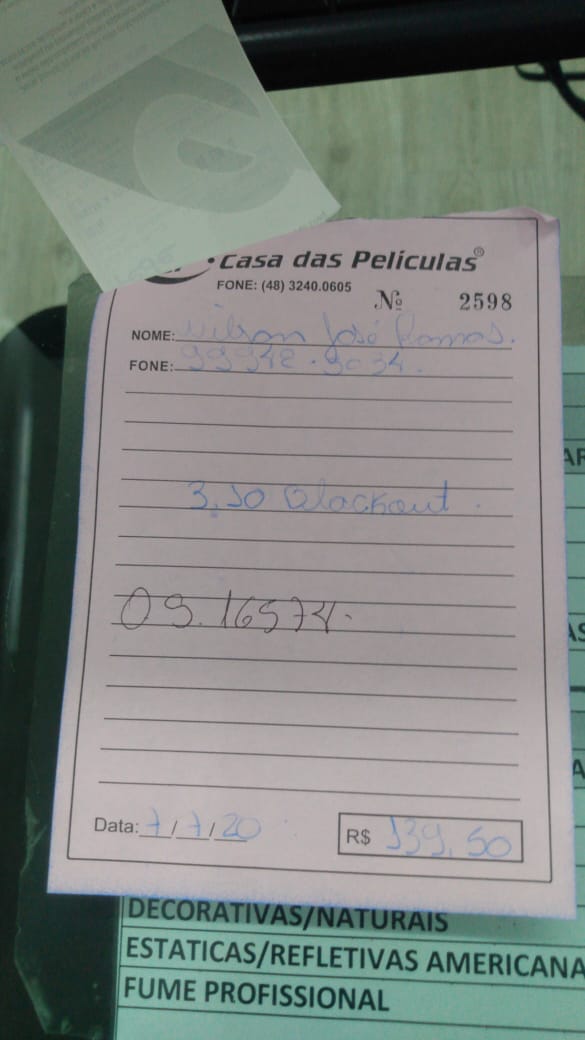 Casa das Películas®
FONE: (48) 3240.0605
Nº 2598
NOME: Wilson José Ramos.
FONE: 99948.9034.
3,10 Blackout.
OS. 16574.
Data: 7/7/20
R$ 139,50
DECORATIVAS/NATURAIS
ESTATICAS/REFLETIVAS AMERICANA
FUME PROFISSIONAL